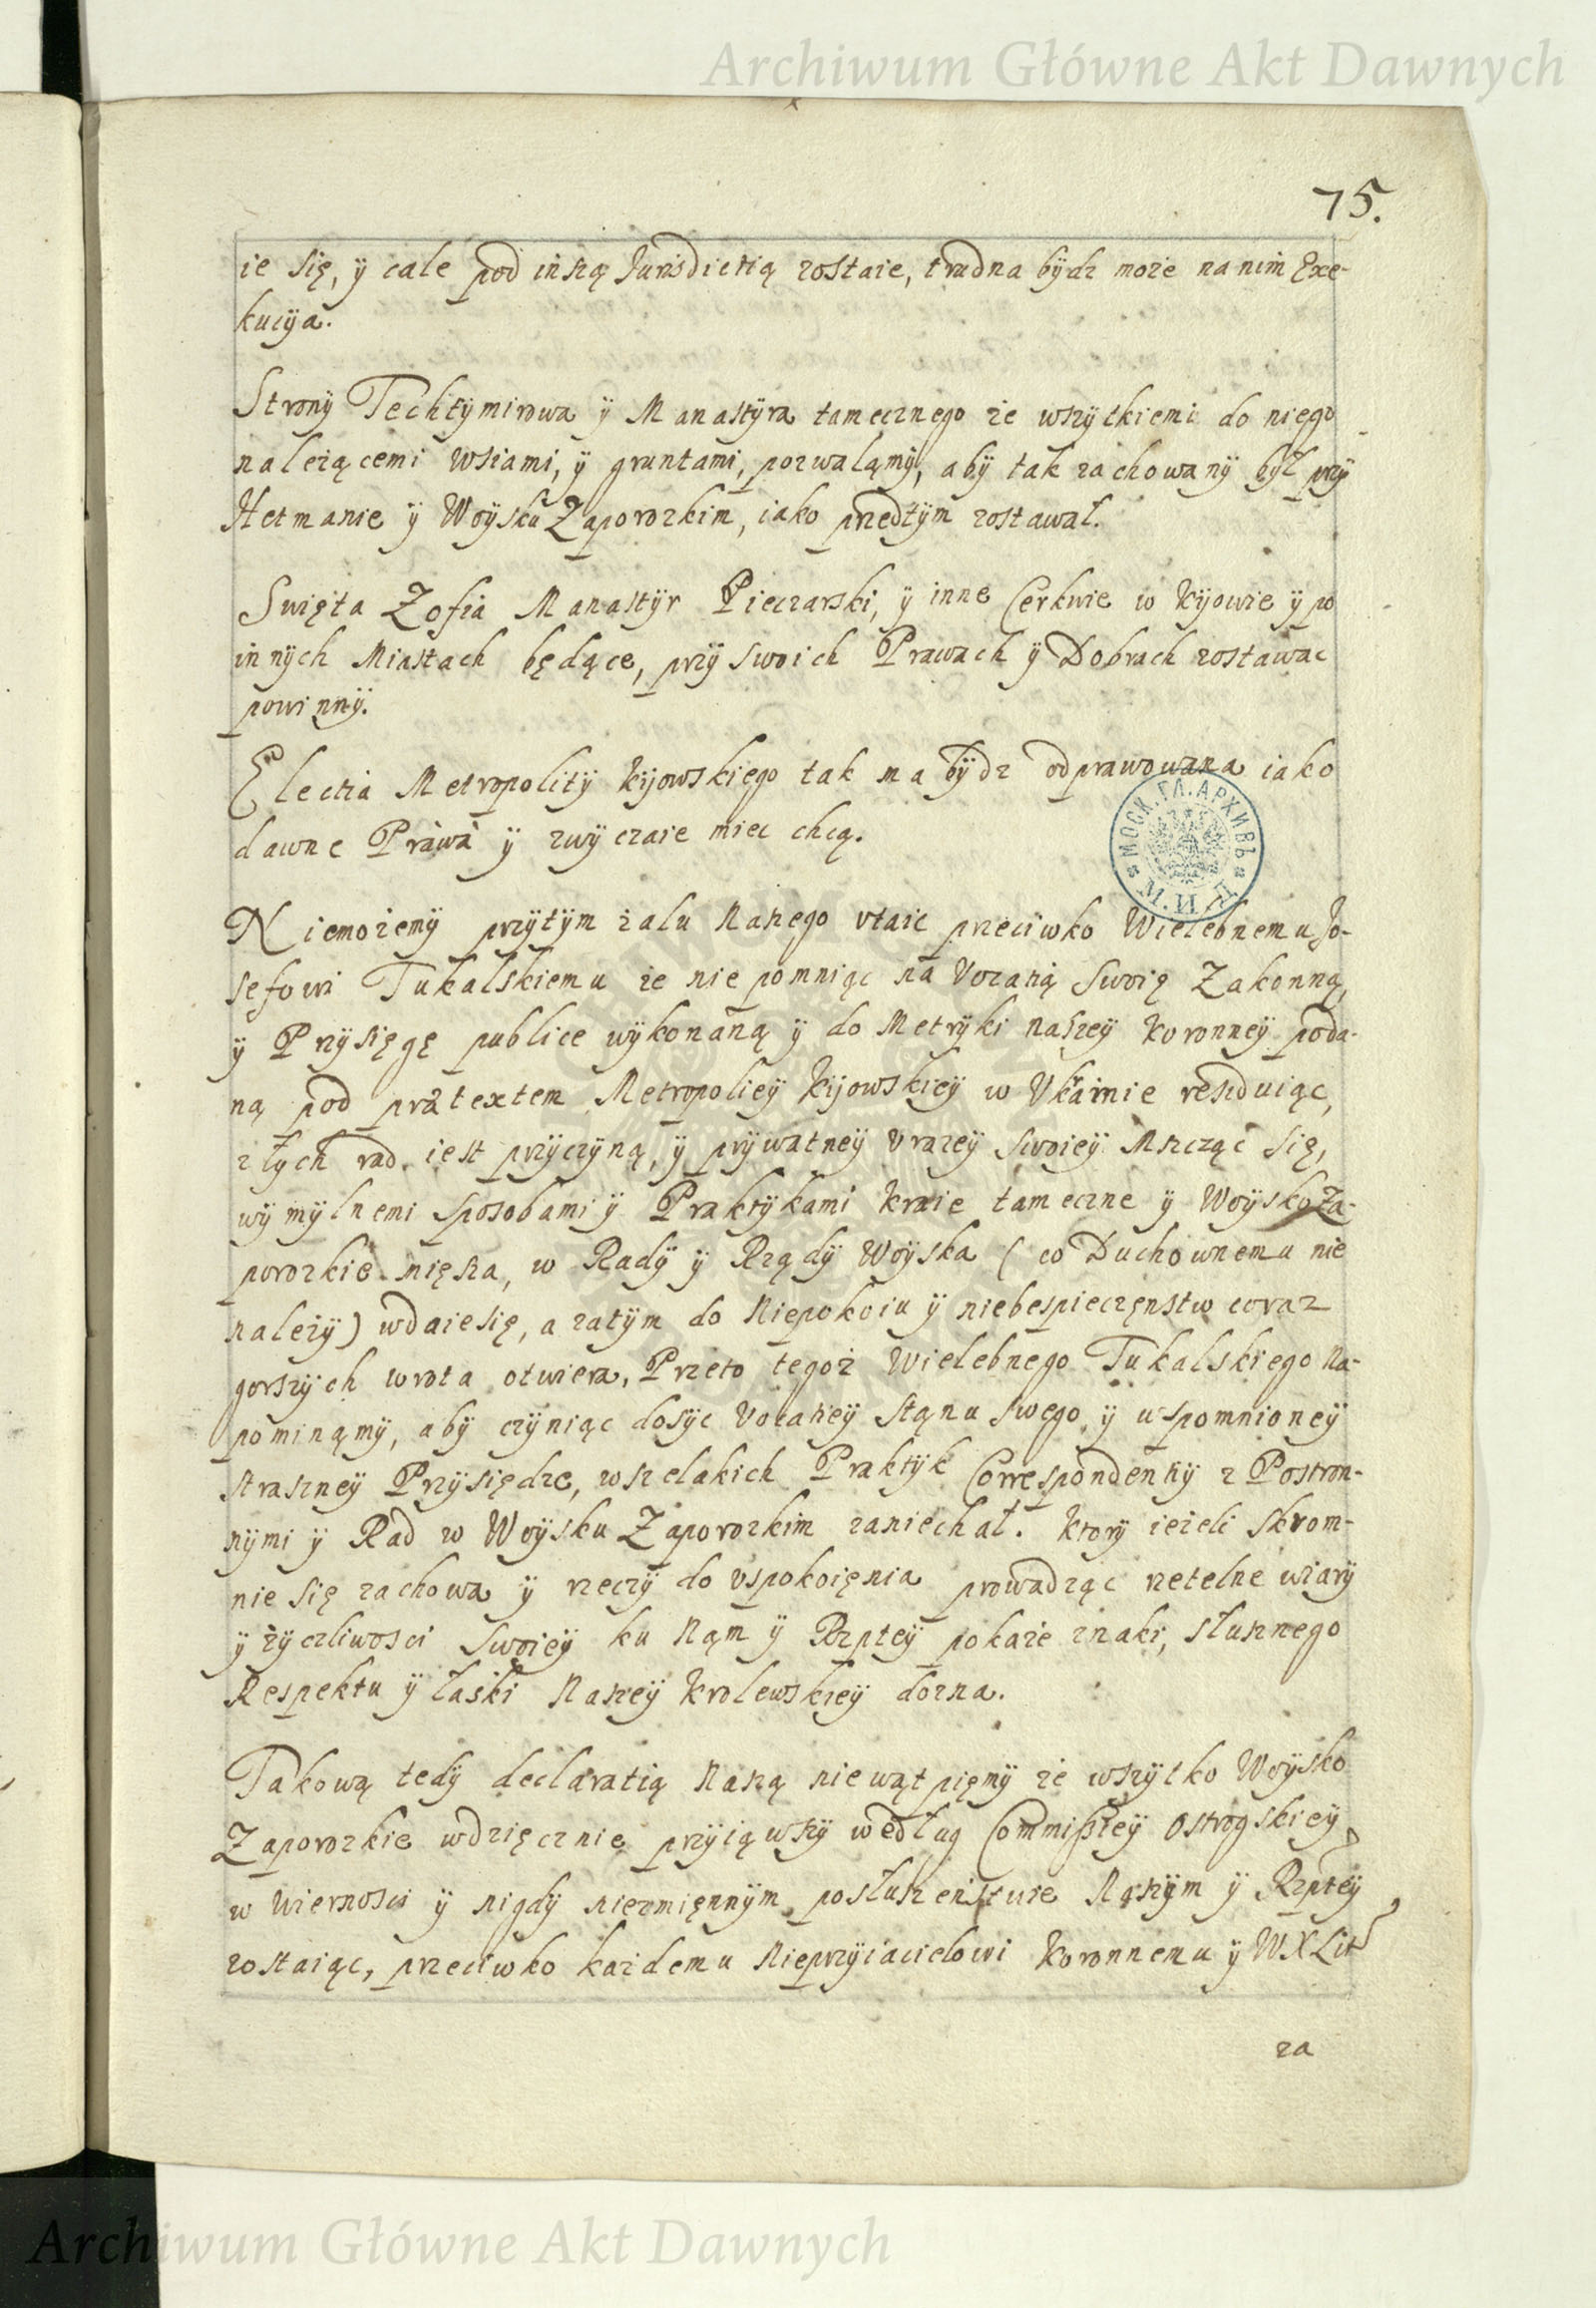 Archiwum Główne Akt Dawnych
75.
ie się, ÿ cale pod inszą Jurisdictią zostaie, trudna bÿdz może na nim Exe-
kucÿa.
Stronÿ Techtÿmirowa ÿ Manastÿra tamecznego ze wszÿtkiemi do niego
należącemi wsiami, ÿ gruntami, pozwalamÿ, abÿ tak zachowanÿ bÿł przÿ
Hetmanie ÿ Woÿsku Zaporozkim, iako przedtÿm zostawał.
Swięta Zofia Manastÿr Pieczarski, ÿ inne Cerkwie w Kijowie ÿ po
innÿch Miastach będące, przÿ swoich Prawach ÿ Dobrach zostawac
powinnÿ.
Electia Metropolitÿ Kijowskiego tak ma bÿdz odprawowana iako
dawne Prawa ÿ zwÿczaie miec chcą.
МОСК. ГЛ. АРХИВЪ М. И. Д.
Niemożemÿ przÿtÿm żalu Naszego utaic przeciwko Wielebnemu Jo-
sefowi Tukalskiemu że nie pomniąc na Vocatią Swoię Zakonną,
ÿ Przÿsięgę publice wÿkonaną ÿ do Metrÿki naszeÿ Koronneÿ poda-
ną pod prætextem Metropolieÿ Kijowskieÿ w Vkrainie reziduiąc,
złÿch rad iest przÿczÿną, ÿ prÿwatneÿ vrazeÿ swoieÿ Mszcząc się,
wÿmÿlnemi sposobami ÿ Praktÿkami Kraie tameczne ÿ Woÿsko Za-
porozkie miesza, w Radÿ ÿ Rządÿ Woÿska (co Duchownemu nie
należÿ) wdaie się, a zatÿm do Niepokoiu ÿ niebespieczęnstw coraz
gorszÿch wrota otwiera, Przeto tegoż Wielebnego Tukalskiego Na-
pominąmÿ, abÿ czÿniąc dosÿc Vocatieÿ Stąnu swego ÿ wspomnioneÿ
straszneÿ Przÿsiędze, wszelakich Praktÿk Correspondentiÿ z Postron-
nÿmi ÿ Rad w Woÿsku Zaporozkim zaniechał. Ktorÿ ieżeli Skrom-
nie się zachowa ÿ rzeczÿ do vspokoięnia prowadząc rzetelne wiarÿ
ÿ żÿczliwosci Swoieÿ ku Nąm ÿ Rzpteÿ pokaże znaki, słusznego
Respektu ÿ łaski Naszeÿ Krolewskieÿ dozna.
Takową tedÿ declaratią Naszą niewątpięmÿ że wszÿtko Woÿsko
Zaporozkie wdzięcznie przÿiąwszÿ według Commissieÿ Ostrogskieÿ
w Wiernosci ÿ nigdÿ niezmięnnÿm posłuszeństwie Naszÿm ÿ Rzpteÿ
zostaiąc, przeciwko każdemu Nieprzÿiacielowi Koronnemu ÿ WXLit
za
Archiwum Główne Akt Dawnych